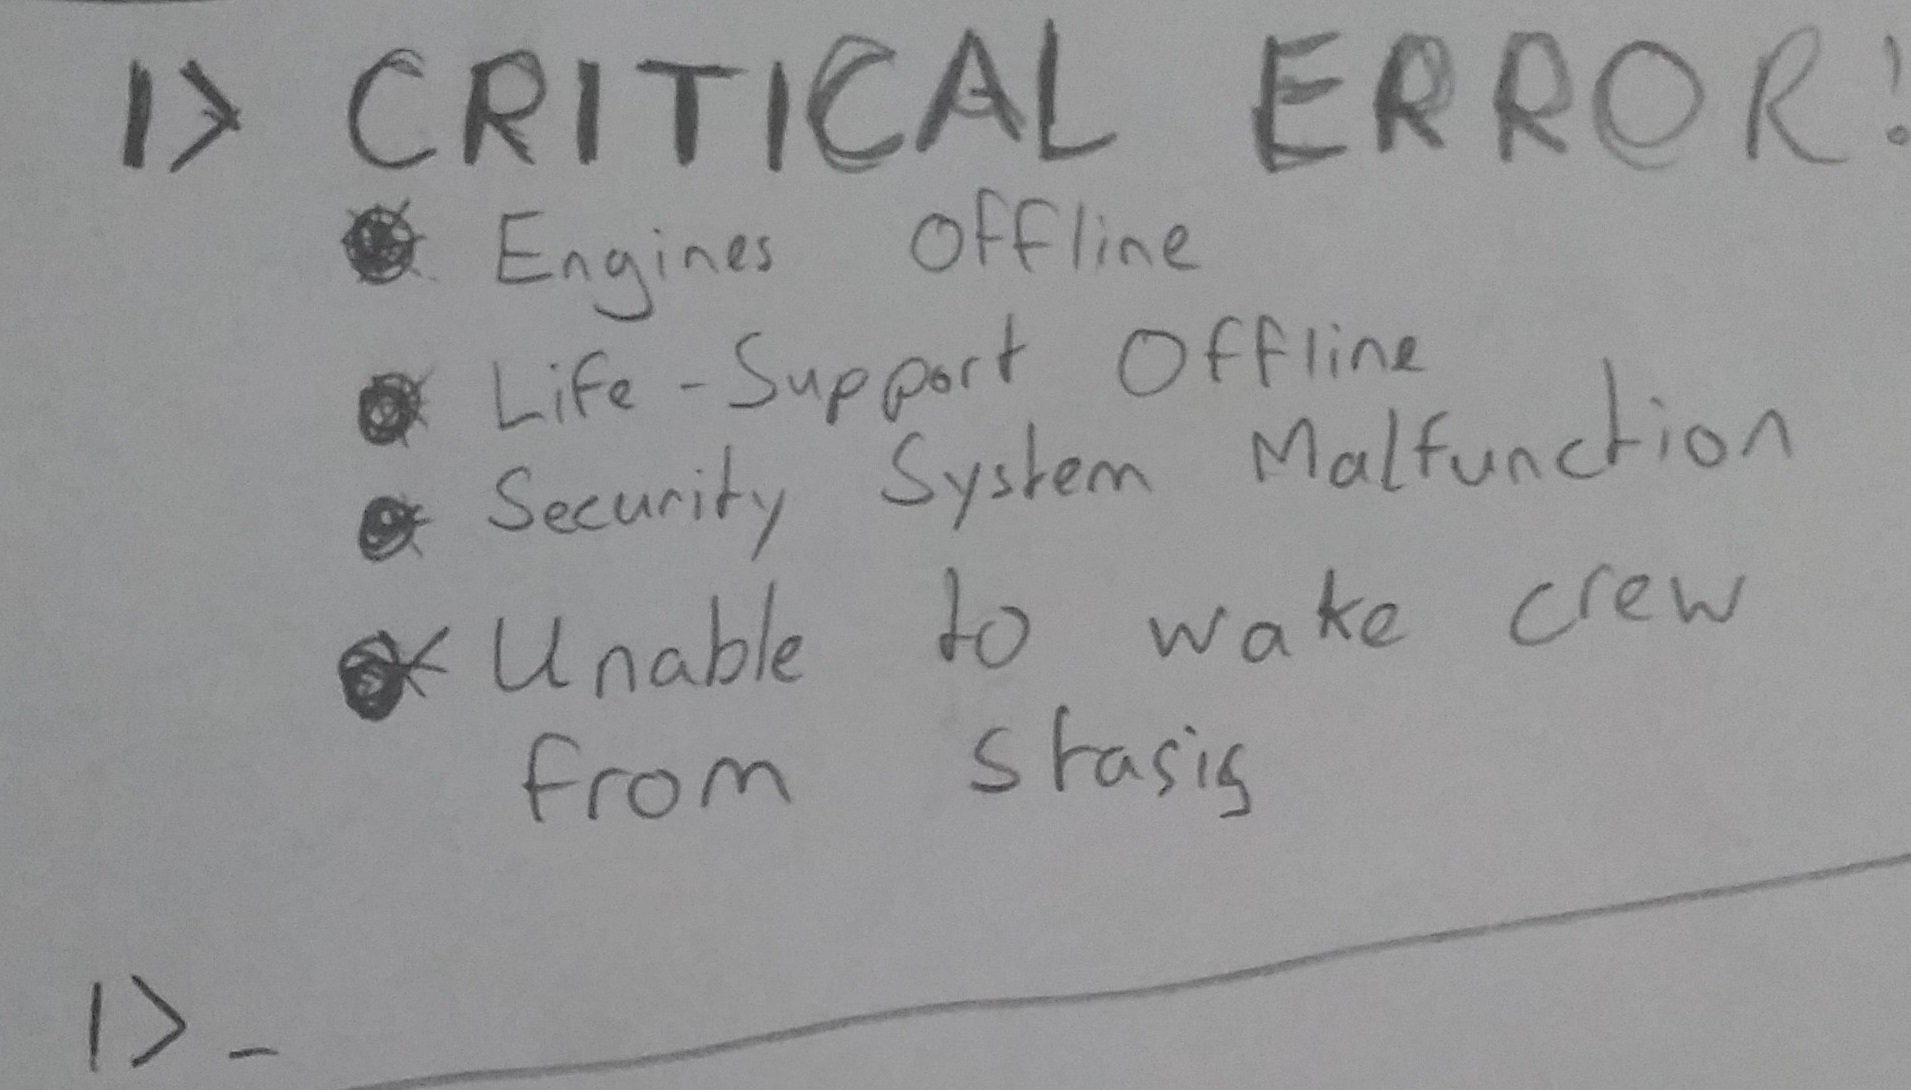 |> CRITICAL ERROR!
• Engines Offline
• Life-Support Offline
• Security System Malfunction
• Unable to wake crew
from stasis
|>_